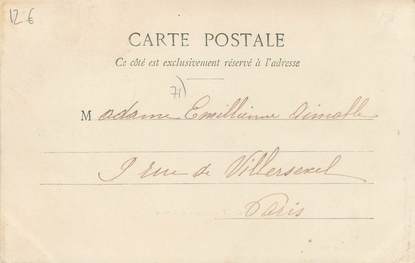 12-6
CARTE POSTALE
Ce côté est exclusivement réservé à l'adresse
71)
Madame Emillienne Aimable
9 rue de Villersexel
Paris